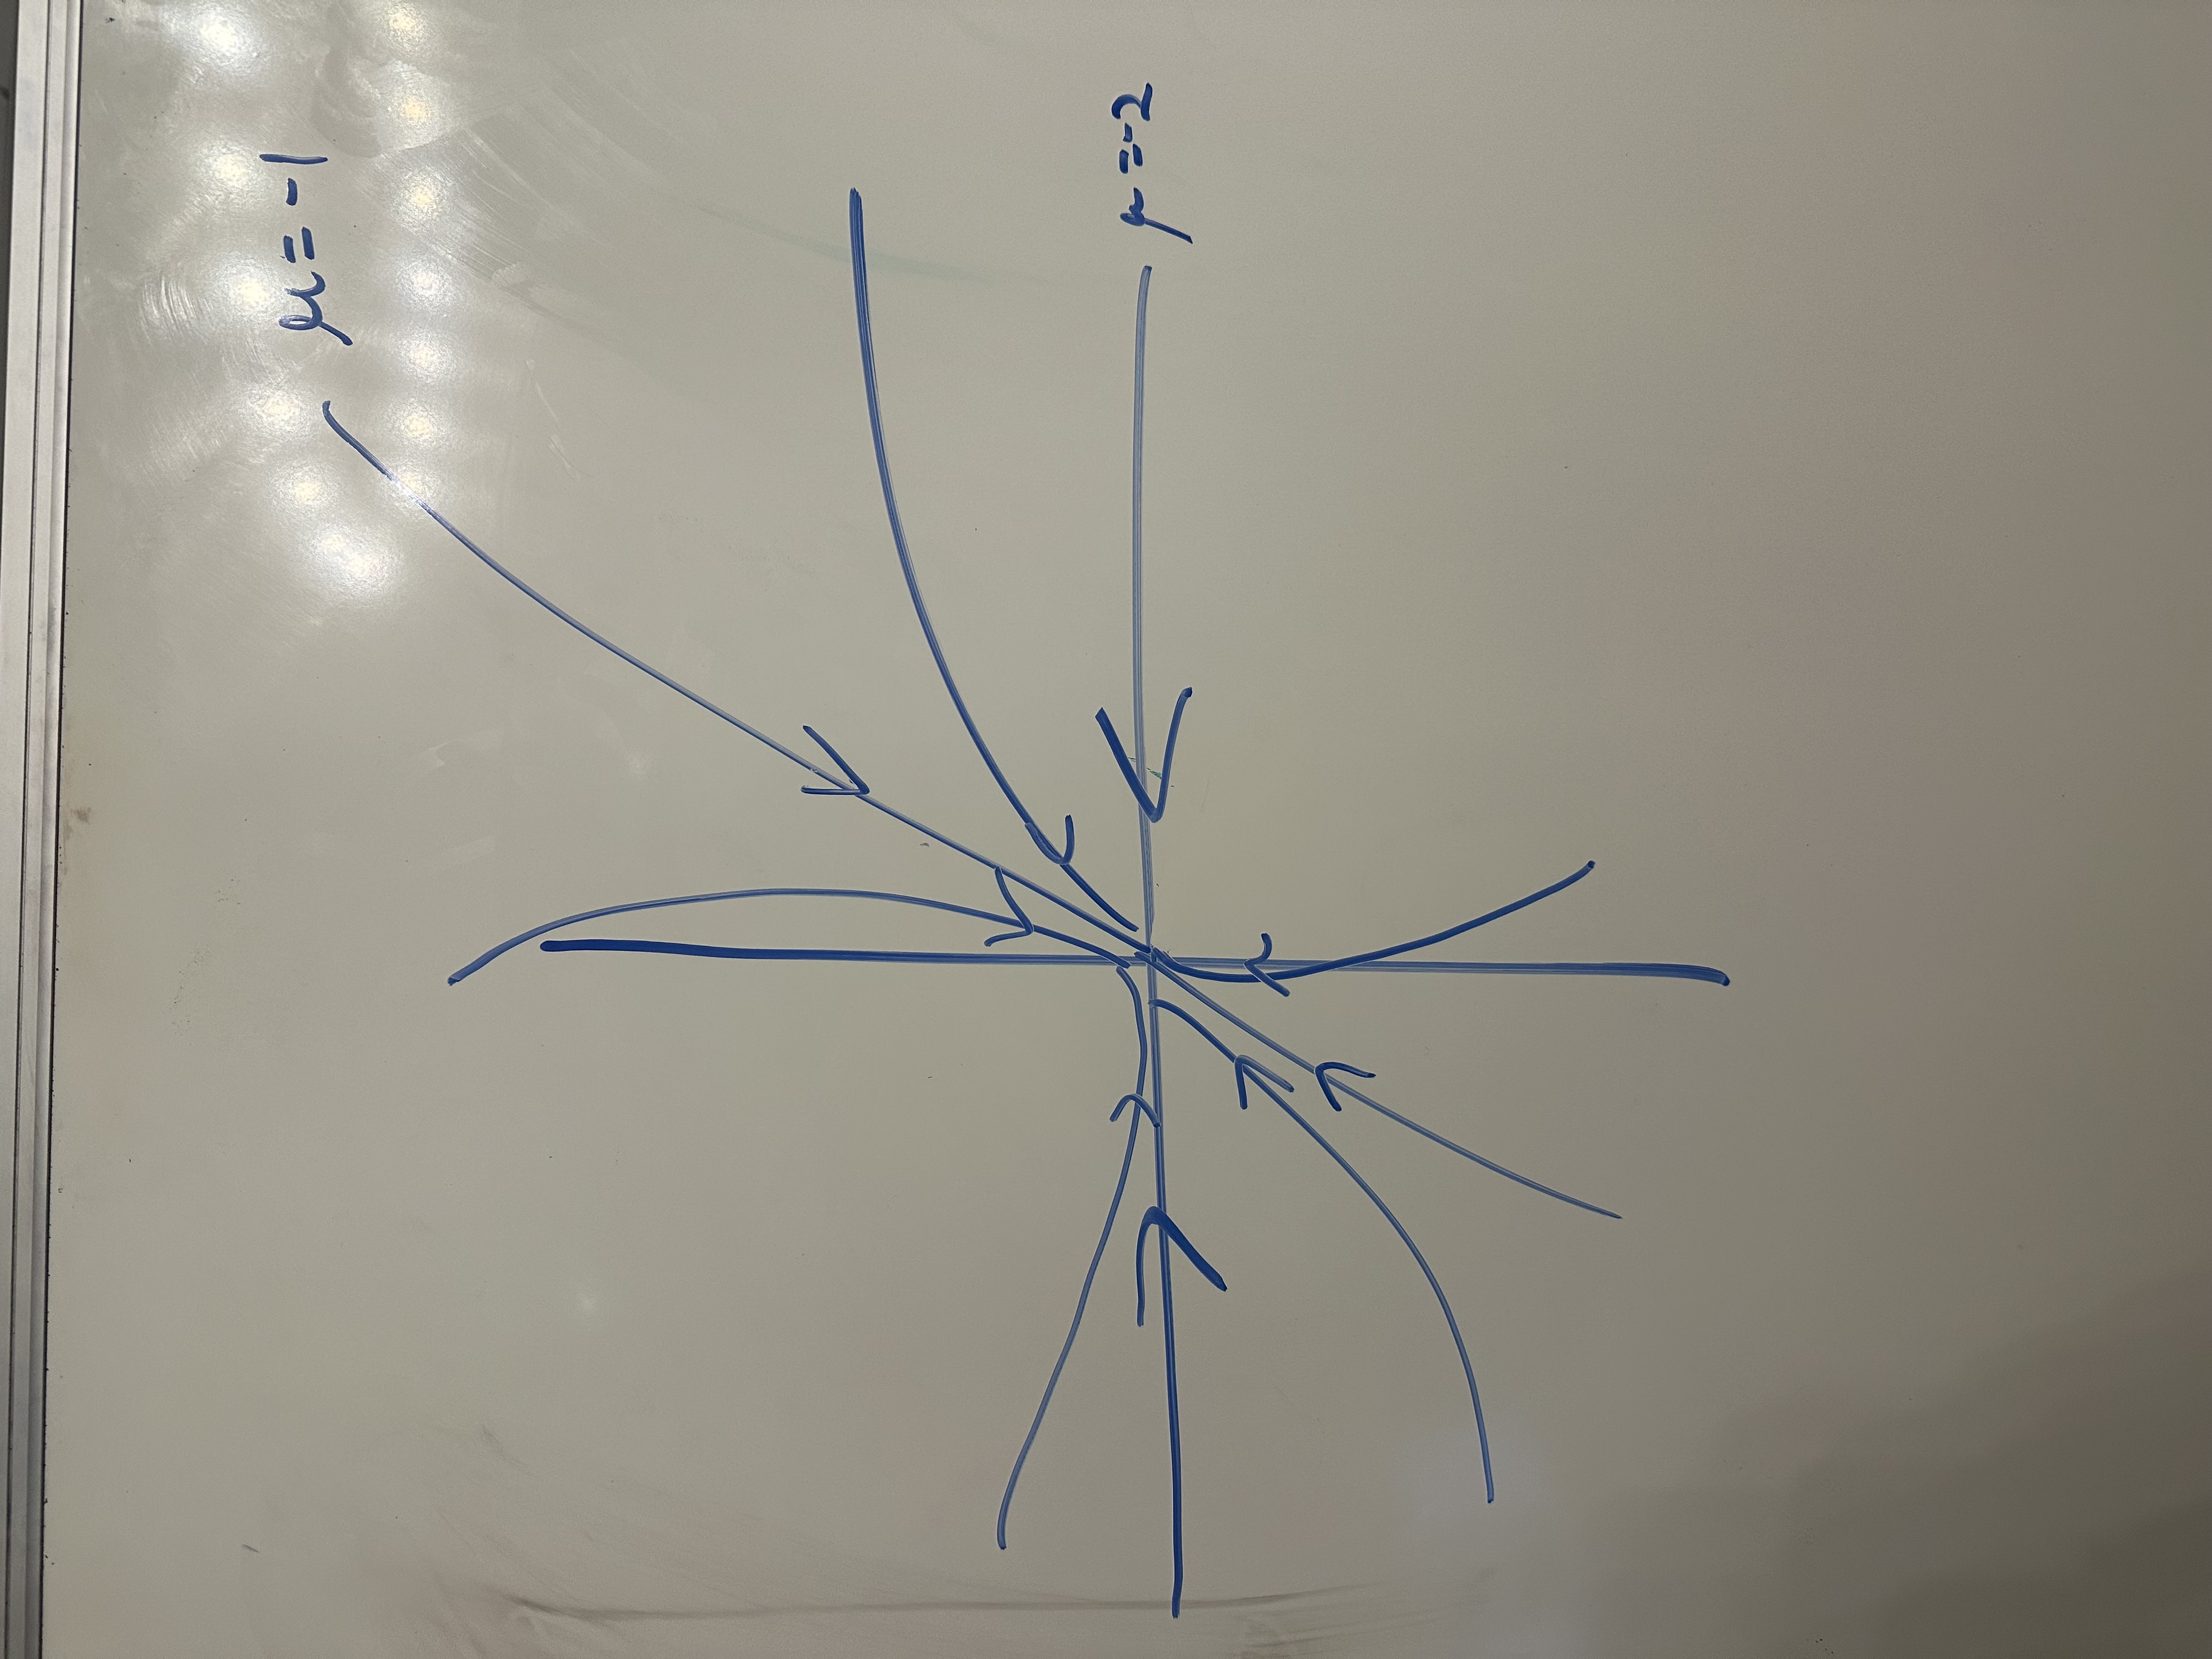 μ=-1
μ=-2